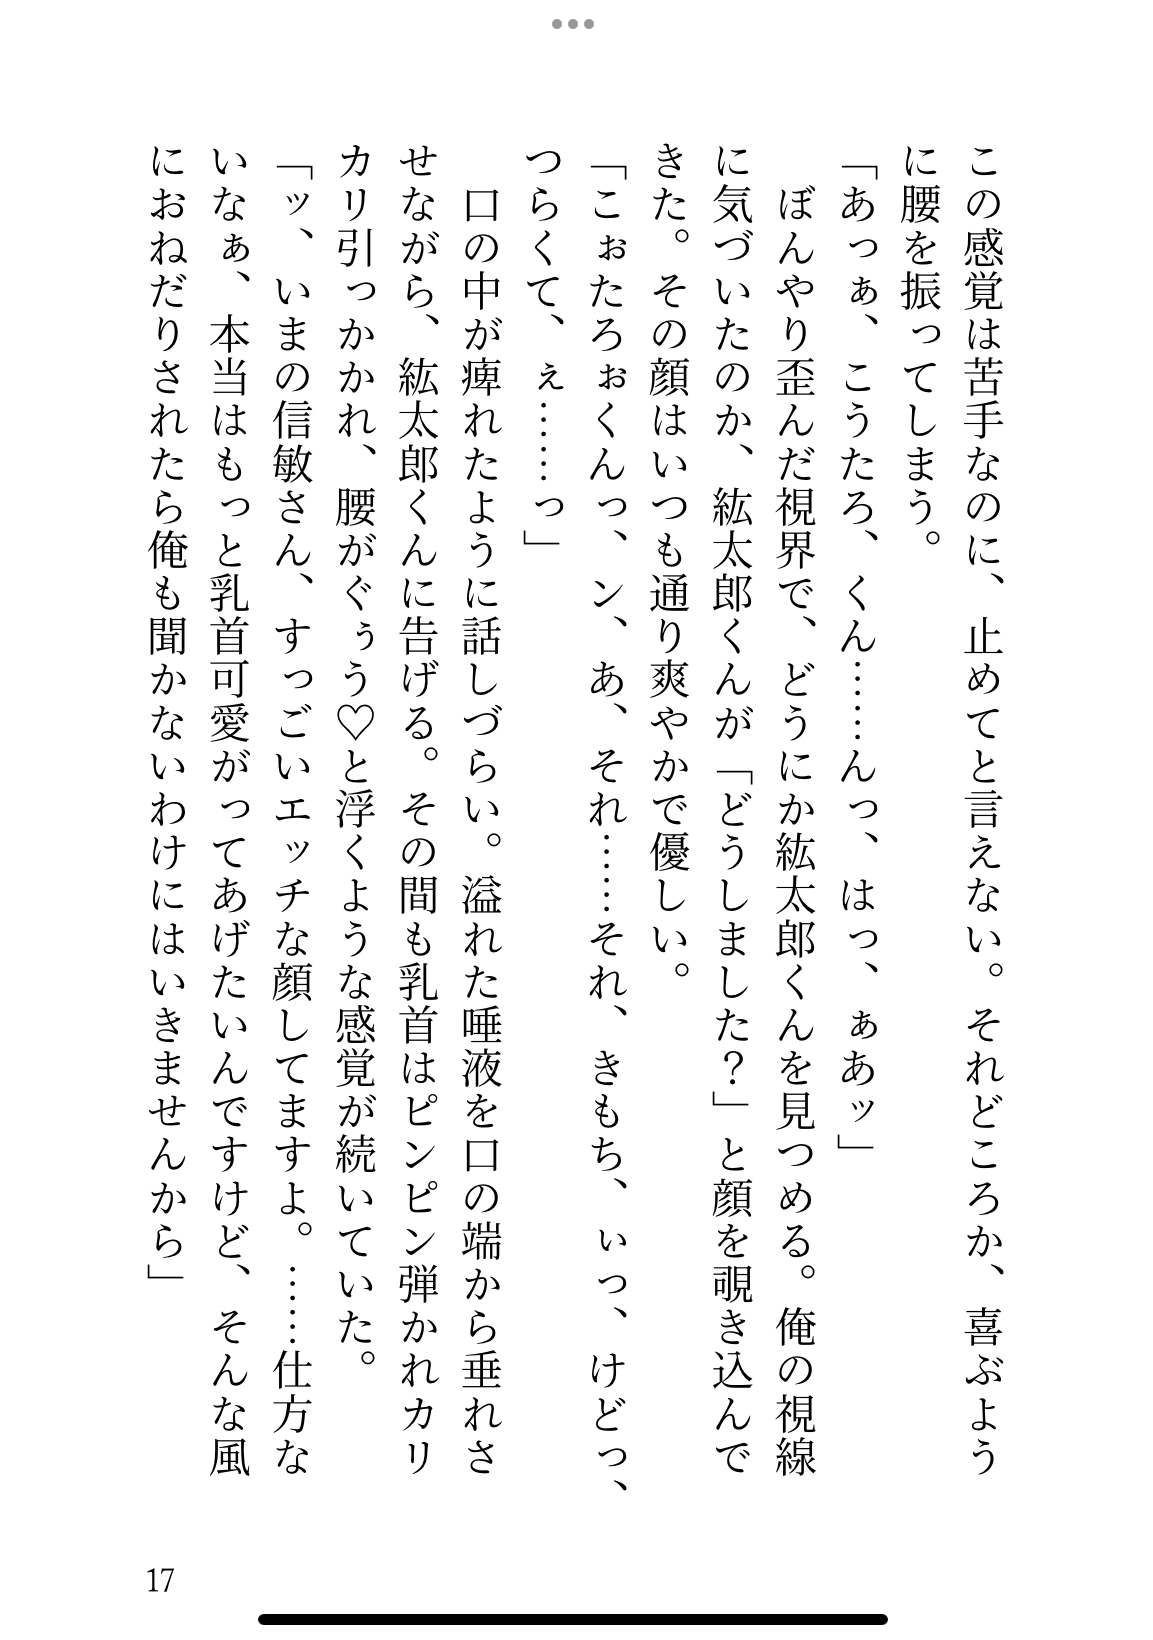 この感覚は苦手なのに、止めてと言えない。それどころか、喜ぶよう
に腰を振ってしまう。
「あっぁ、こうたろ、くん……んっ、はっ、ぁあッ」
ぼんやり歪んだ視界で、どうにか紘太郎くんを見つめる。俺の視線
に気づいたのか、紘太郎くんが「どうしました？」と顔を覗き込んで
きた。その顔はいつも通り爽やかで優しい。
「こぉたろぉくんっ、ン、あ、それ……それ、きもち、ぃっ、けどっ、
つらくて、ぇ……っ」
口の中が痺れたように話しづらい。溢れた唾液を口の端から垂れさ
せながら、紘太郎くんに告げる。その間も乳首はピンピン弾かれカリ
カリ引っかかれ、腰がぐぅう♡と浮くような感覚が続いていた。
「ッ、いまの信敏さん、すっごいエッチな顔してますよ。……仕方な
いなぁ、本当はもっと乳首可愛がってあげたいんですけど、そんな風
におねだりされたら俺も聞かないわけにはいきませんから」
17